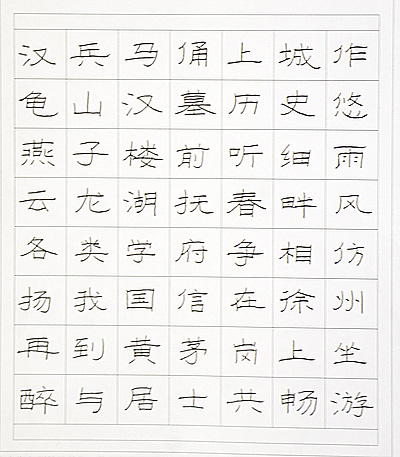 汉兵马俑上城作
龟山汉墓历史悠
燕子楼前听细雨
云龙湖抚春畔风
各类学府争相仿
扬我国信在徐州
再到黄茅岗上坐
醉与居士共畅游